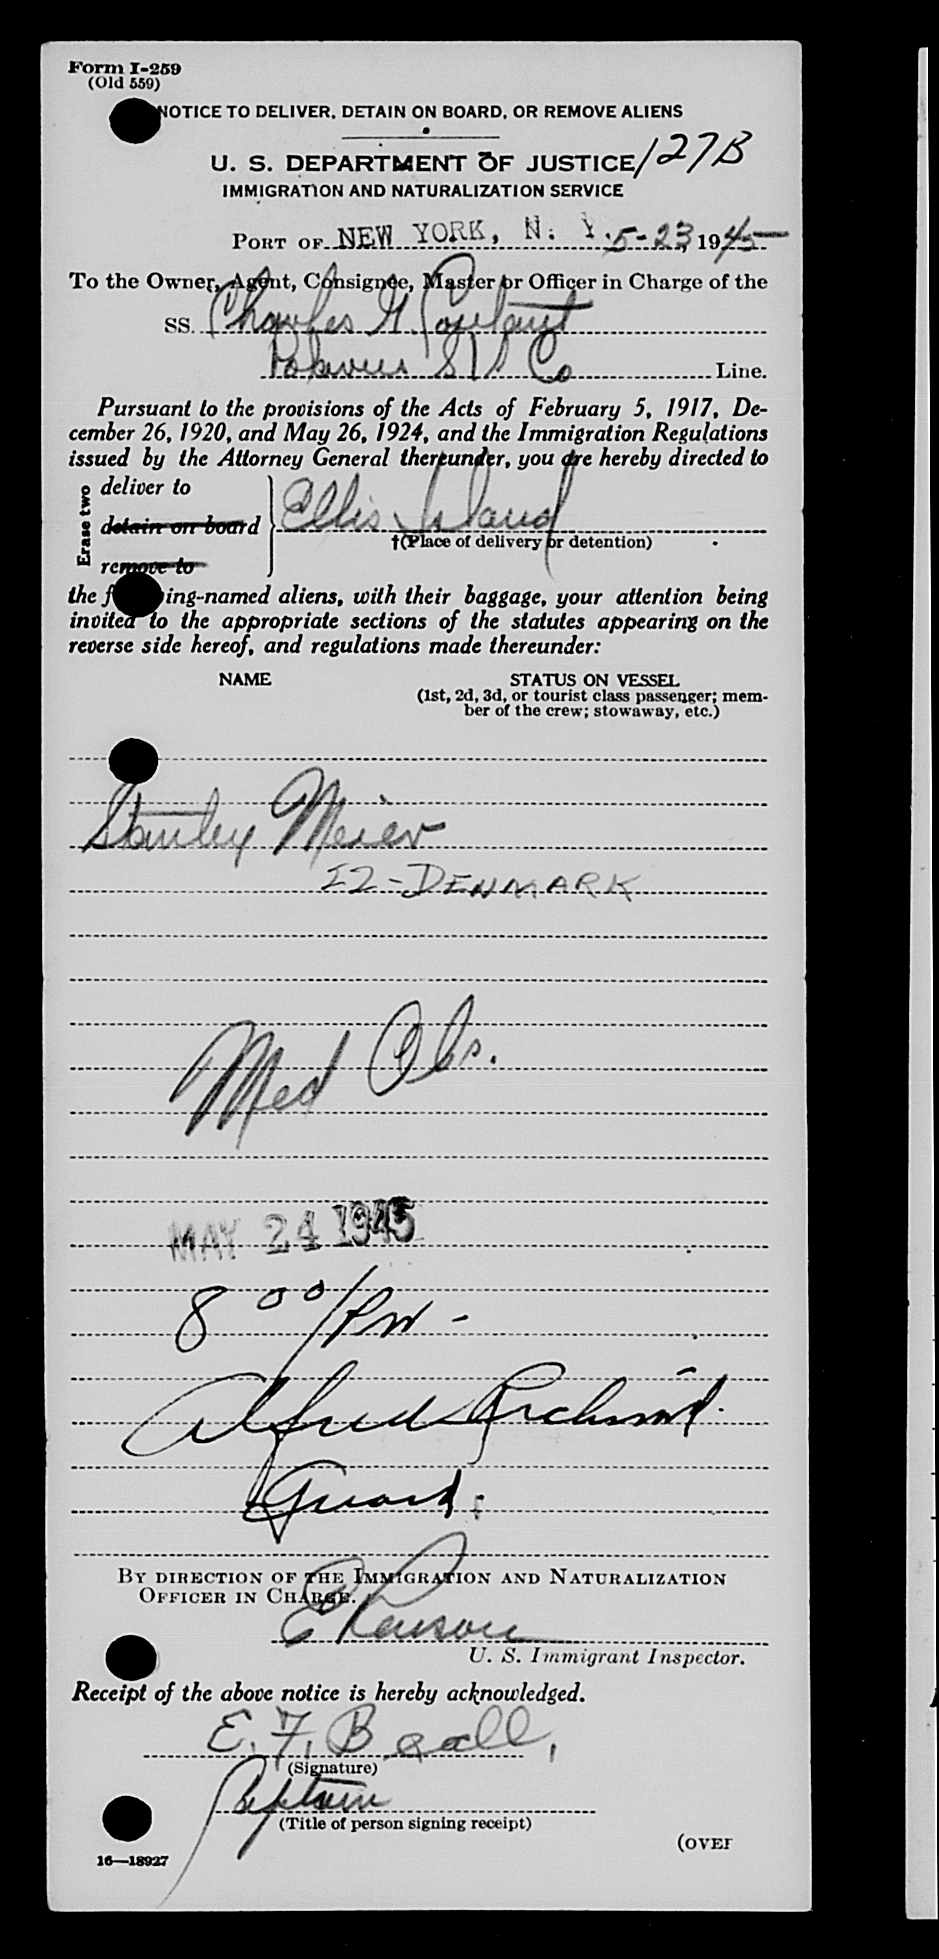 Form I-259
(Old 559)
NOTICE TO DELIVER, DETAIN ON BOARD, OR REMOVE ALIENS
U. S. DEPARTMENT OF JUSTICE 127B
IMMIGRATION AND NATURALIZATION SERVICE
PORT OF NEW YORK, N. Y. 5-23, 1945
To the Owner, Agent, Consignee, Master or Officer in Charge of the
SS. Charles H.
Co Line.
Pursuant to the provisions of the Acts of February 5, 1917, De-
cember 26, 1920, and May 26, 1924, and the Immigration Regulations
issued by the Attorney General thereunder, you are hereby directed to
Erase two
deliver to
detain on board
remove to
Ellis Island
†(Place of delivery or detention)
the f ing-named aliens, with their baggage, your attention being
invited to the appropriate sections of the statutes appearing on the
reverse side hereof, and regulations made thereunder:
NAME STATUS ON VESSEL
(1st, 2d, 3d, or tourist class passenger; mem-
ber of the crew; stowaway, etc.)
Stanley Meier
22-DENMARK
Med Obs.
MAY 24 1945
8 00/PM -
Alfred
Guard.
BY DIRECTION OF THE IMMIGRATION AND NATURALIZATION
OFFICER IN CHARGE.
E
U. S. Immigrant Inspector.
Receipt of the above notice is hereby acknowledged.
E. F. Beall,
(Signature)
Captain
(Title of person signing receipt)
(OVER
16—18927